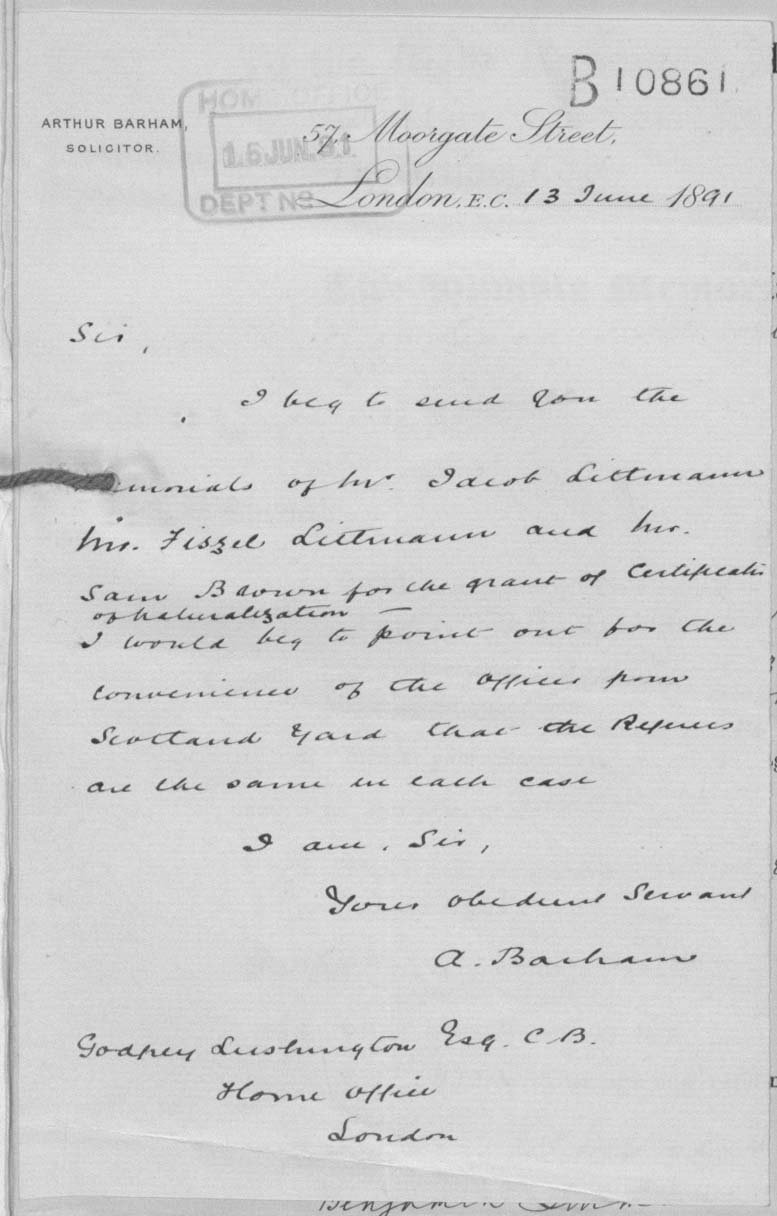 B 10861
ARTHUR BARHAM,
SOLICITOR.
HOME OFFICE
16 JUN. 91
DEPT No
57, Moorgate Street,
London, E.C. 13 June 1891
Sir,
I beg to send you the
memorials of Mr. Jacob Littmann
Mr. Fiszel Littmann and Mr.
Sam Brown for the grant of Certificates
of Naturalization —
I would beg to point out for the
convenience of the Officer from
Scotland Yard that the Referees
are the same in each case
I am, Sir,
Your obedient Servant
A. Barham
Godfrey Lushington Esq. C.B.
Home Office
London
Benjamin